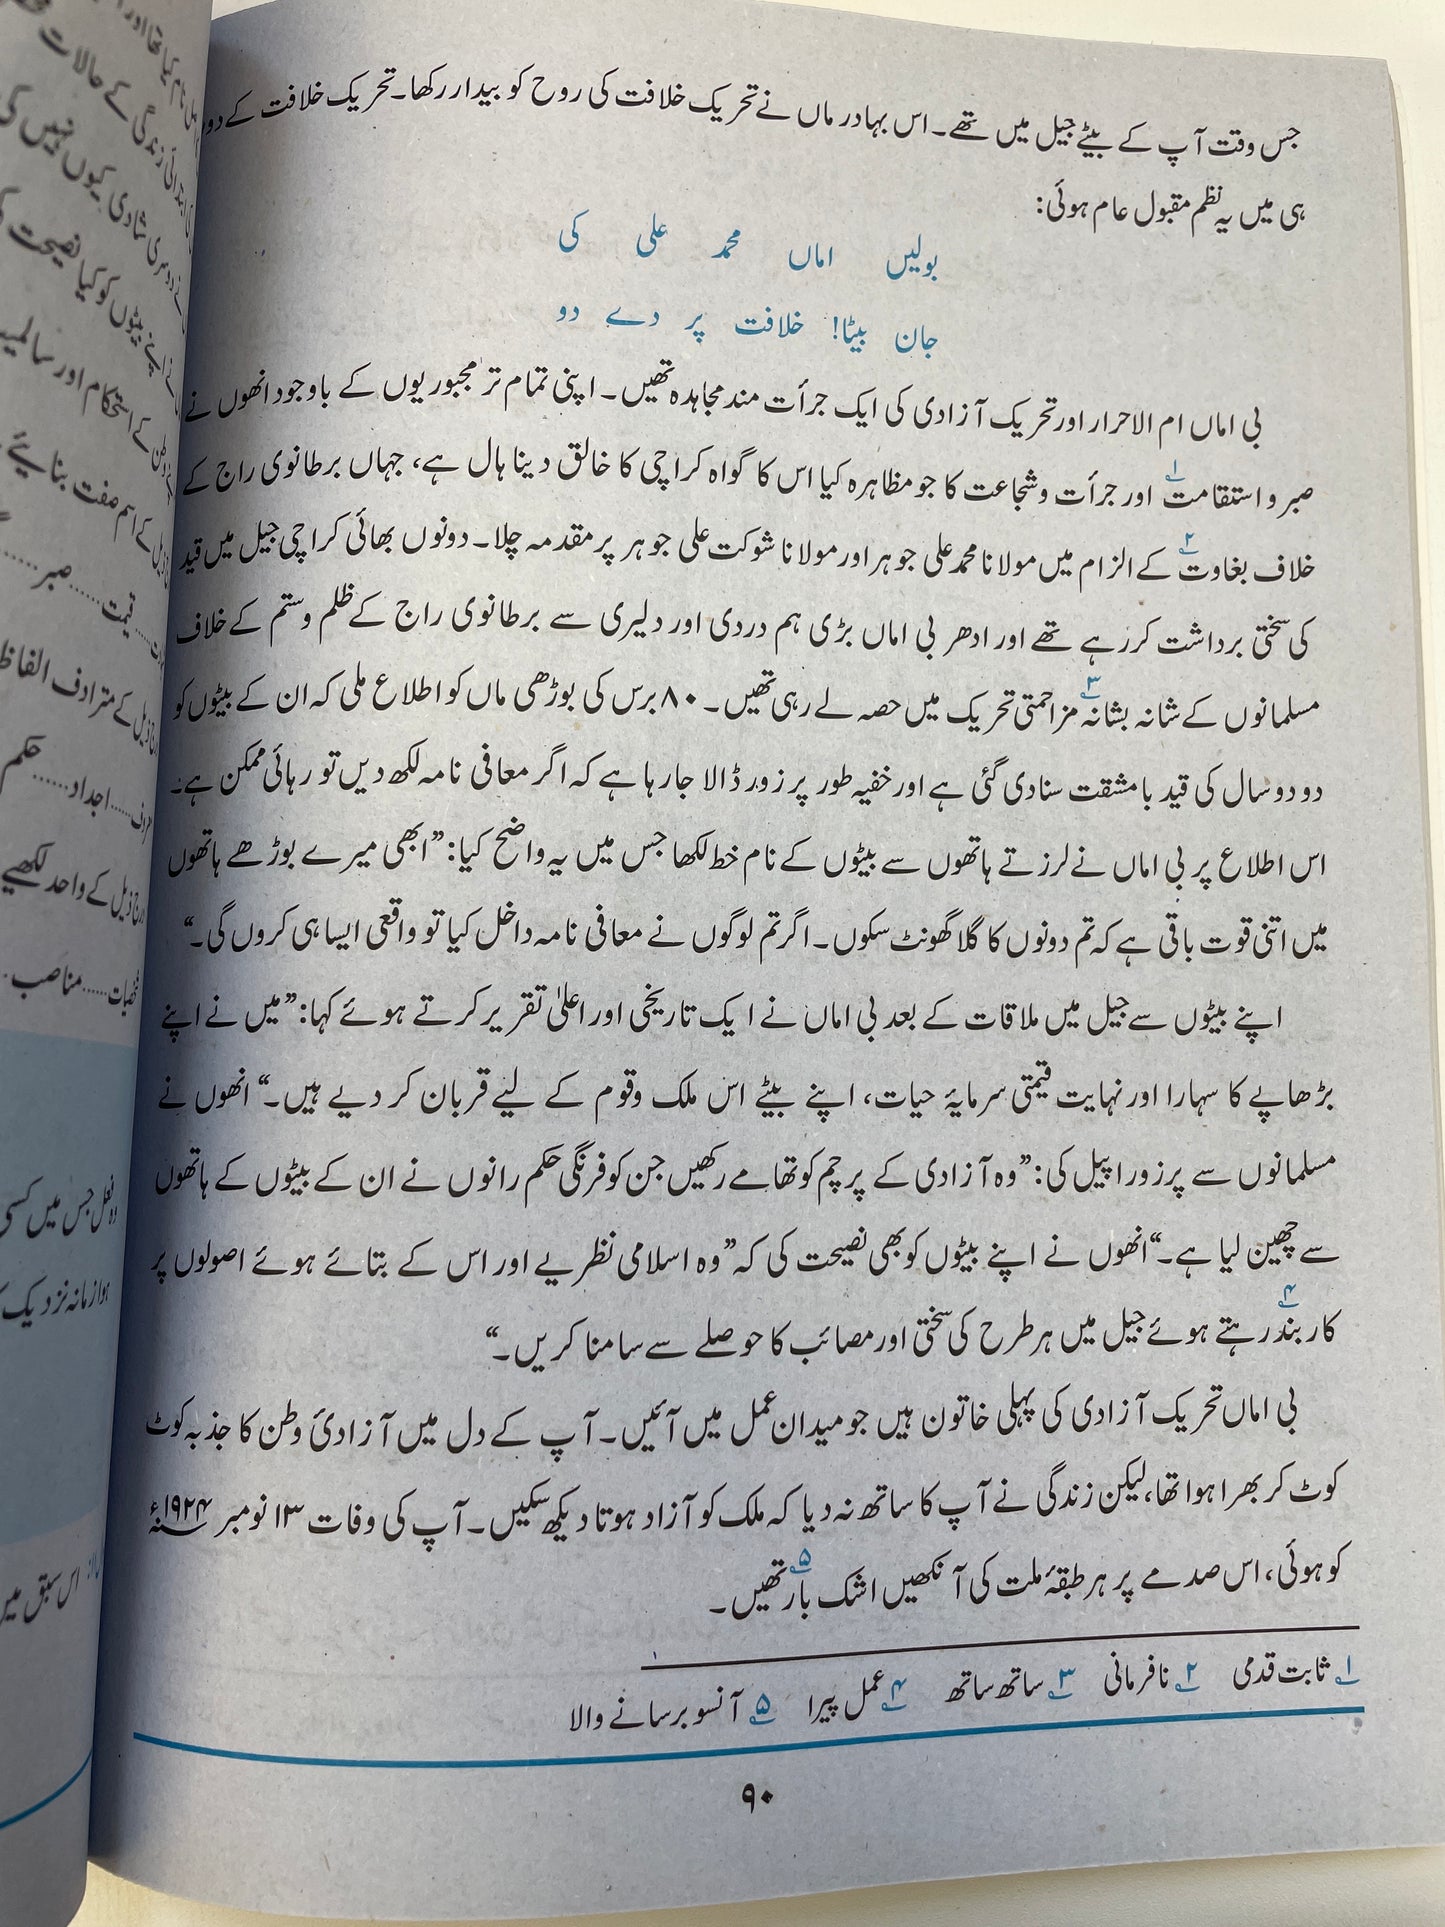 جس وقت آپ کے بیٹے جیل میں تھے۔ اس بہادر ماں نے تحریک خلافت کی روح کو بیدار رکھا۔ تحریک خلافت کے دور
ہی میں یہ نظم مقبول عام ہوئی:
بولیں اماں محمد علی کی
جان بیٹا! خلافت پر دے دو
بی اماں ام الاحرار اور تحریک آزادی کی ایک جرأت مند مجاہدہ تھیں۔ اپنی تمام تر مجبوریوں کے باوجود انھوں نے
صبر و استقامت۱ اور جرأت و شجاعت کا جو مظاہرہ کیا اس کا گواہ کراچی کا خالق دینا ہال ہے، جہاں برطانوی راج کے
خلاف بغاوت۲ کے الزام میں مولانا محمد علی جوہر اور مولانا شوکت علی جوہر پر مقدمہ چلا۔ دونوں بھائی کراچی جیل میں قید
کی سختی برداشت کررہے تھے اور ادھر بی اماں بڑی ہم دردی اور دلیری سے برطانوی راج کے ظلم و ستم کے خلاف
مسلمانوں کے شانہ بشانہ۳ مزاحمتی تحریک میں حصہ لے رہی تھیں۔ ۸۰ برس کی بوڑھی ماں کو اطلاع ملی کہ ان کے بیٹوں کو
دو دو سال کی قید بامشقت سنادی گئی ہے اور خفیہ طور پر زور ڈالا جارہا ہے کہ اگر معافی نامہ لکھ دیں تو رہائی ممکن ہے۔
اس اطلاع پر بی اماں نے لرزتے ہاتھوں سے بیٹوں کے نام خط لکھا جس میں یہ واضح کیا: ”ابھی میرے بوڑھے ہاتھوں
میں اتنی قوت باقی ہے کہ تم دونوں کا گلا گھونٹ سکوں۔ اگر تم لوگوں نے معافی نامہ داخل کیا تو واقعی ایسا ہی کروں گی۔“
اپنے بیٹوں سے جیل میں ملاقات کے بعد بی اماں نے ایک تاریخی اور اعلیٰ تقریر کرتے ہوئے کہا: ”میں نے اپنے
بڑھاپے کا سہارا اور نہایت قیمتی سرمایۂ حیات، اپنے بیٹے اس ملک و قوم کے لیے قربان کر دیے ہیں۔“ انھوں نے
مسلمانوں سے پرزور اپیل کی: ”وہ آزادی کے پرچم کو تھامے رکھیں جن کو فرنگی حکم رانوں نے ان کے بیٹوں کے ہاتھوں
سے چھین لیا ہے۔“ انھوں نے اپنے بیٹوں کو بھی نصیحت کی کہ ”وہ اسلامی نظریے اور اس کے بتائے ہوئے اصولوں پر
کاربند۴ رہتے ہوئے جیل میں ہر طرح کی سختی اور مصائب کا حوصلے سے سامنا کریں۔“
بی اماں تحریک آزادی کی پہلی خاتون ہیں جو میدان عمل میں آئیں۔ آپ کے دل میں آزادیٔ وطن کا جذبہ کوٹ
کوٹ کر بھرا ہوا تھا، لیکن زندگی نے آپ کا ساتھ نہ دیا کہ ملک کو آزاد ہوتا دیکھ سکیں۔ آپ کی وفات ۱۳ نومبر ۱۹۲۴ء
کو ہوئی، اس صدمے پر ہر طبقۂ ملت کی آنکھیں اشک بار۵ تھیں۔
۱ ثابت قدمی ۲ نافرمانی ۳ ساتھ ساتھ ۴ عمل پیرا ۵ آنسو برسانے والا
۹۰
زندگی کے حالات
دوسری شادی کیوں نہیں کی
اپنے بیٹوں کو کیا نصیحت
کے استحکام اور سالمیت
کے اسم صفت بنایئے
قیمت......صبر......
کے مترادف الفاظ
......اجداد......حکم
ذیل کے واحد لکھیے
شخصیات......مناصب
وہ فعل جس میں کسی
ہوا زمانہ نزدیک
اس سبق میں